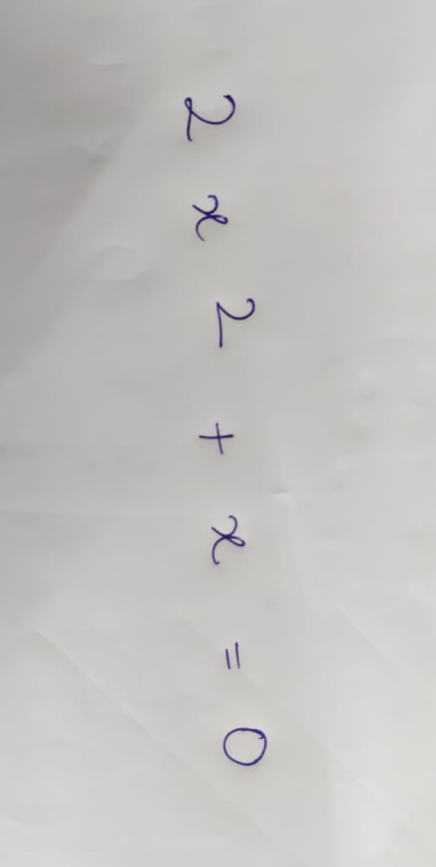 2 x 2 + x = 0